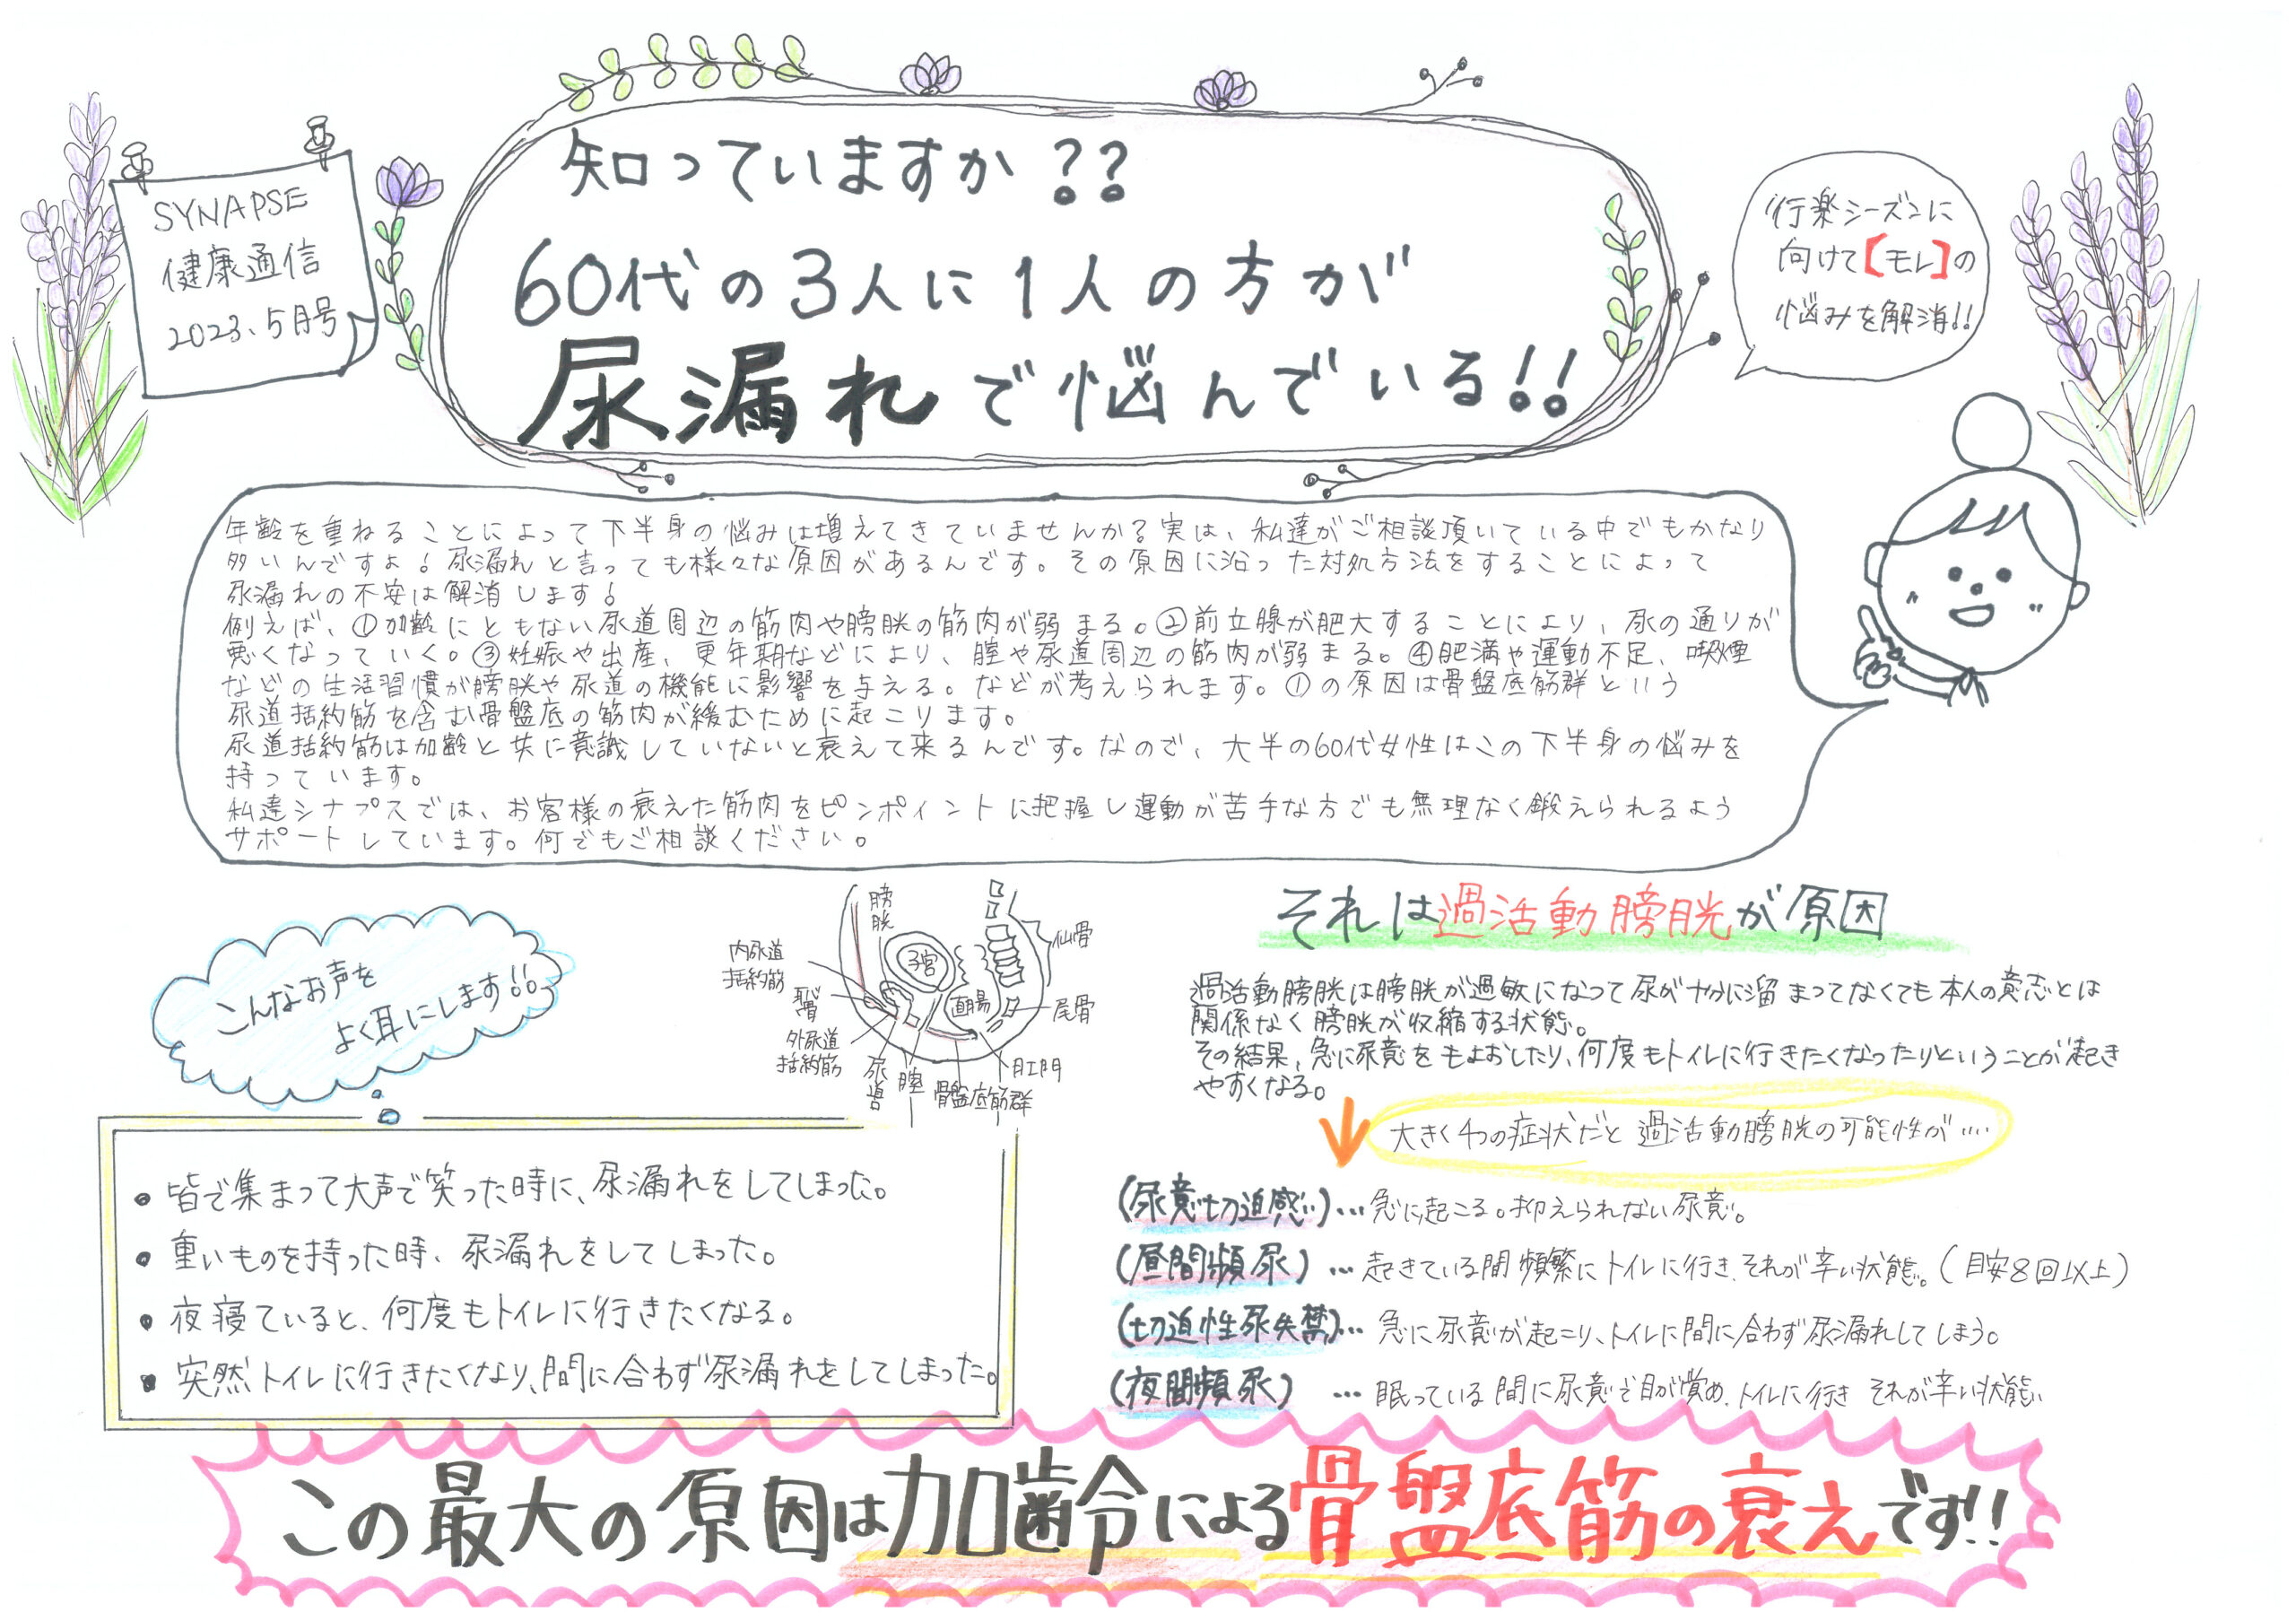 SYNAPSE
健康通信
2023.5月号
知っていますか??
60代の3人に1人の方が
尿漏れで悩んでいる!!
行楽シーズンに
向けて【モレ】の
悩みを解消!!
年齢を重ねることによって下半身の悩みは増えてきていませんか?実は、私達がご相談頂いている中でもかなり
多いんですよ!尿漏れと言っても様々な原因があるんです。その原因に沿った対処方法をすることによって
尿漏れの不安は解消します!
例えば、①加齢にともない尿道周辺の筋肉や膀胱の筋肉が弱まる。②前立腺が肥大することにより、尿の通りが
悪くなっていく。③妊娠や出産、更年期などにより、膣や尿道周辺の筋肉が弱まる。④肥満や運動不足、喫煙
などの生活習慣が膀胱や尿道の機能に影響を与える。などが考えられます。①の原因は骨盤底筋群という
尿道括約筋を含む骨盤底の筋肉が緩むために起こります。
尿道括約筋は加齢と共に意識していないと衰えて来るんです。なので、大半の60代女性はこの下半身の悩みを
持っています。
私達シナプスでは、お客様の衰えた筋肉をピンポイントに把握し運動が苦手な方でも無理なく鍛えられるよう
サポートしています。何でもご相談ください。
こんなお声を
よく耳にします!!
膀胱
内尿道
括約筋
恥骨
外尿道
括約筋
尿道
膣
骨盤底筋群
肛門
尾骨
仙骨
子宮
直腸
・皆で集まって大声で笑った時に、尿漏れをしてしまった。
・重いものを持った時、尿漏れをしてしまった。
・夜寝ていると、何度もトイレに行きたくなる。
・突然トイレに行きたくなり、間に合わず尿漏れをしてしまった。
それは過活動膀胱が原因
過活動膀胱は膀胱が過敏になって尿が十分に溜まってなくても本人の意志とは
関係なく膀胱が収縮する状態。
その結果、急に尿意をもよおしたり、何度もトイレに行きたくなったりということが起き
やすくなる。
大きく4つの症状だと過活動膀胱の可能性が....
(尿意切迫感)...急に起こる。抑えられない尿意。
(昼間頻尿)...起きている間頻繁にトイレに行き、それが辛い状態。(目安8回以上)
(切迫性尿失禁)...急に尿意が起こり、トイレに間に合わず尿漏れしてしまう。
(夜間頻尿)...眠っている間に尿意で目が覚め、トイレに行きそれが辛い状態
この最大の原因は加齢による骨盤底筋の衰えです!!